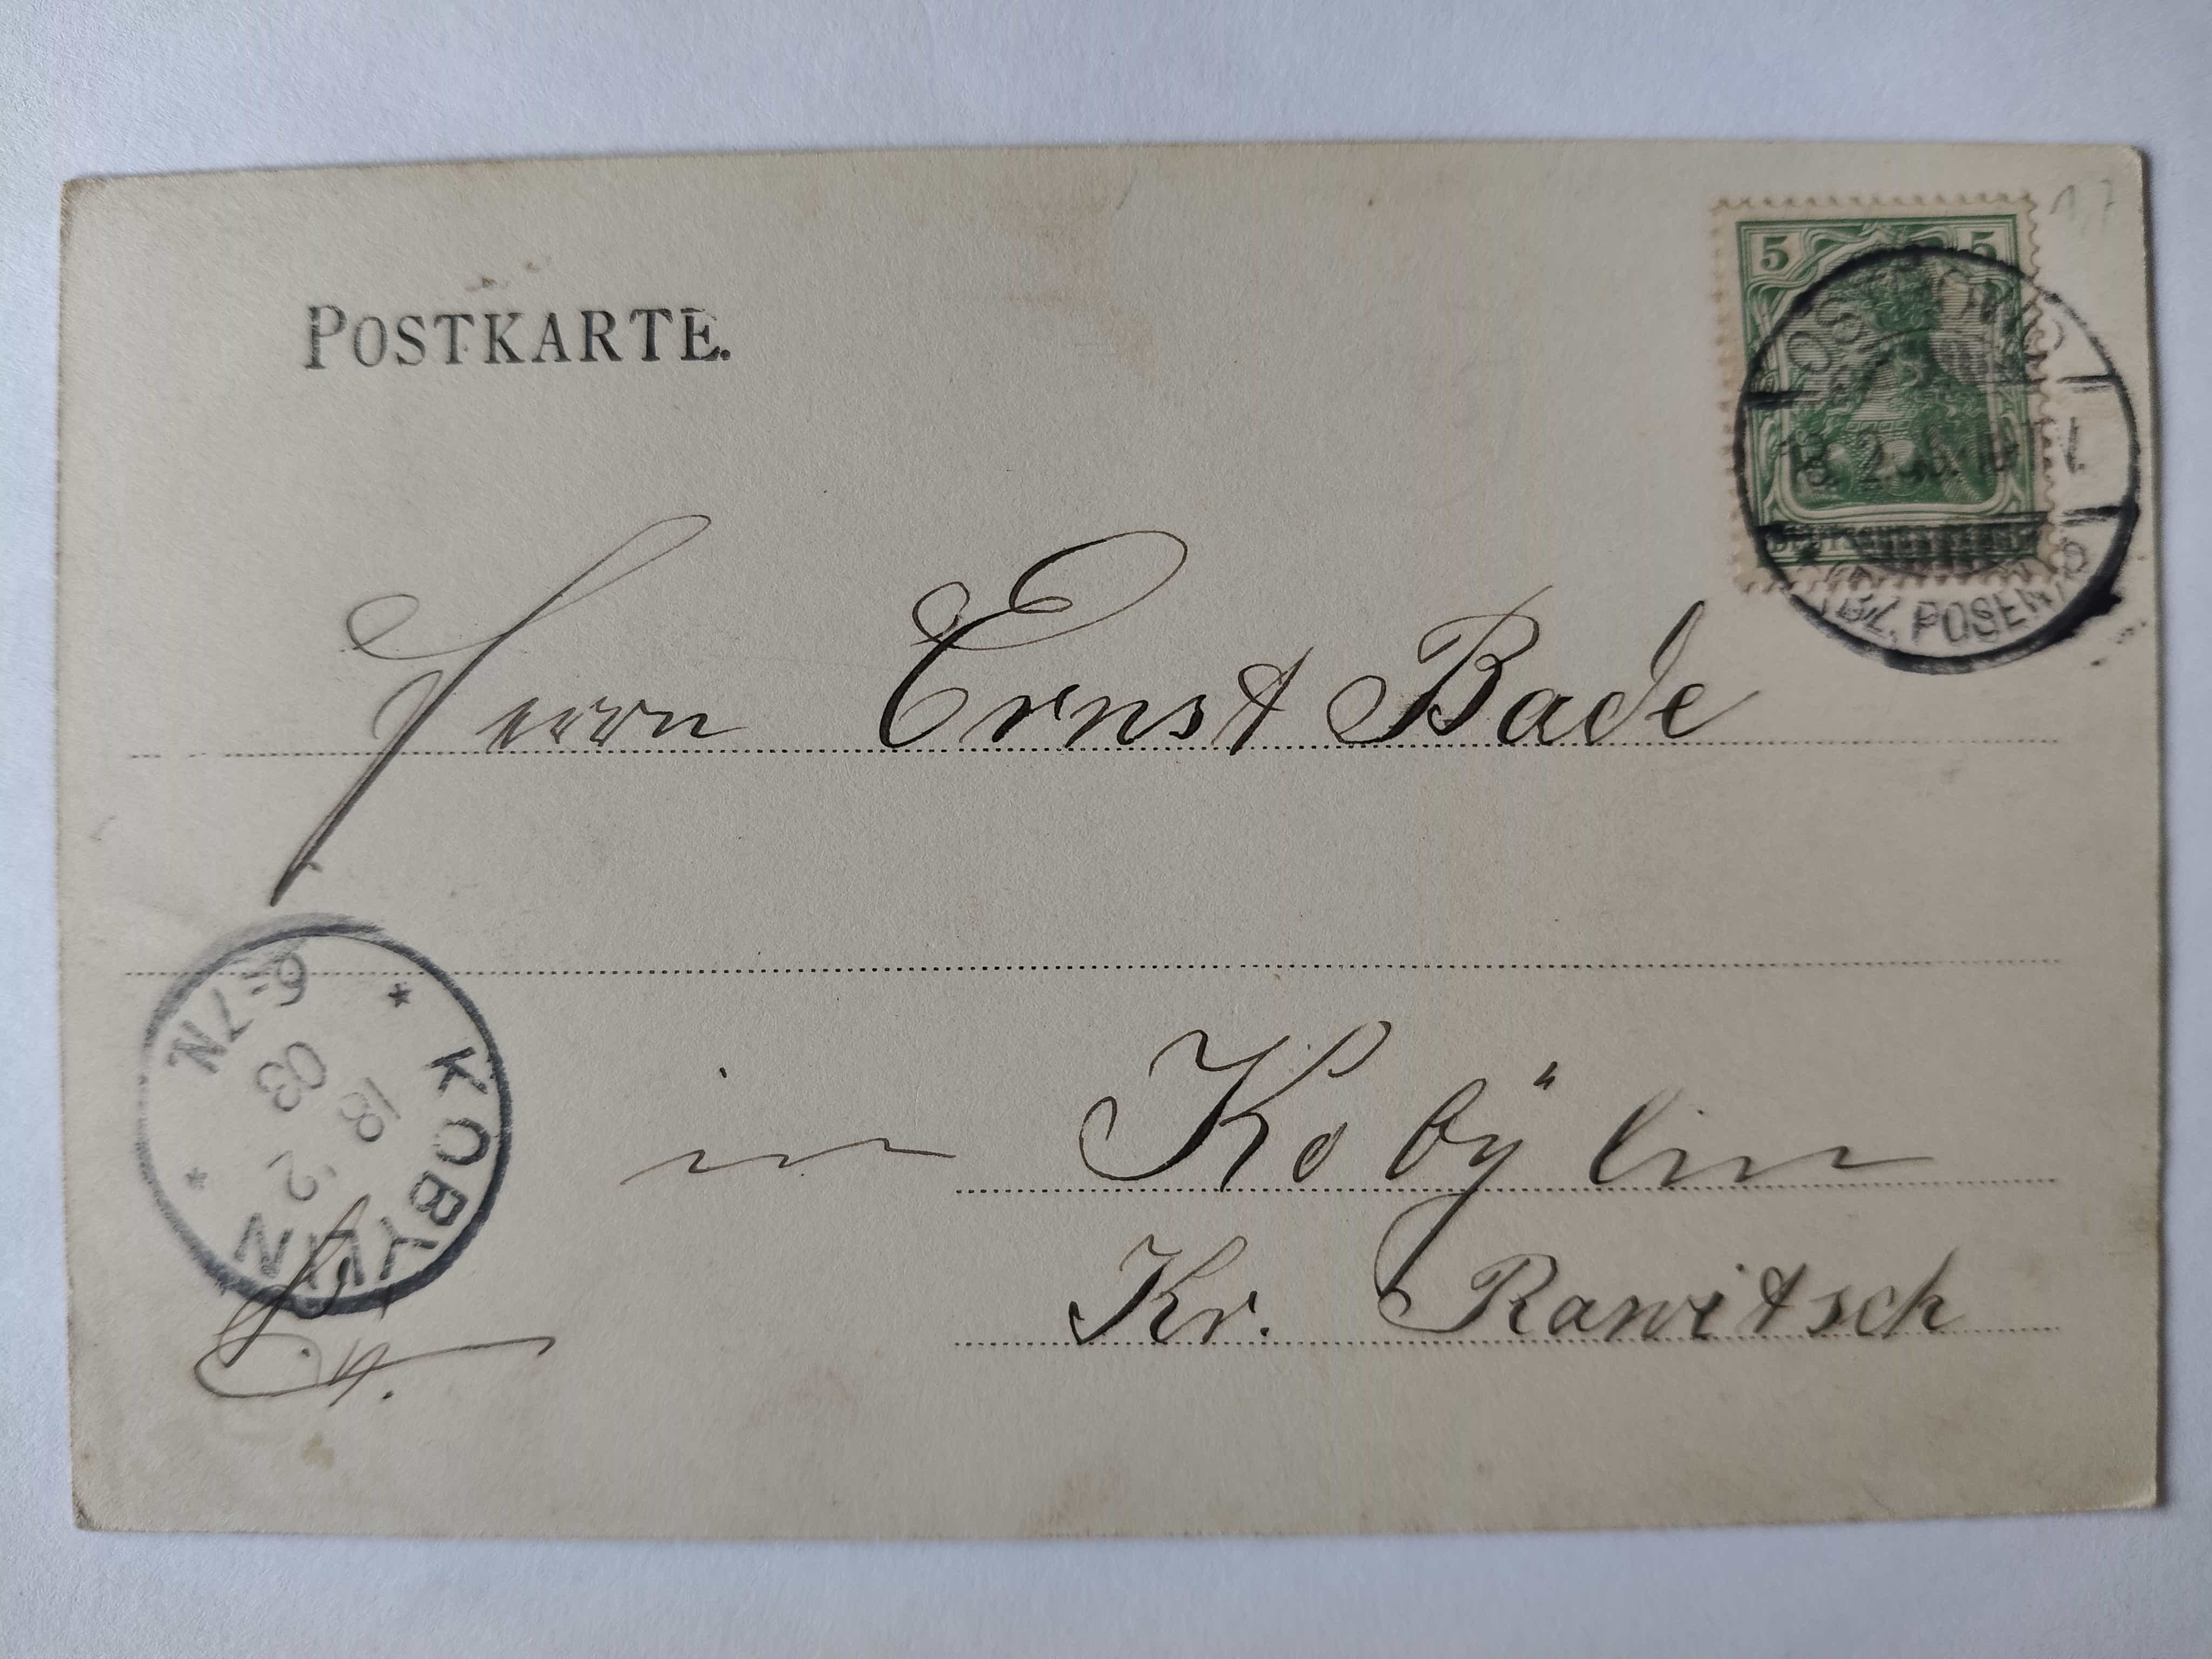 POSTKARTE.
5 5
(BZ. POSEN)
Herrn Ernst Bade
in Kobÿlin
Kr. Rawitsch
KOBYLIN
18 2
03
6-7N